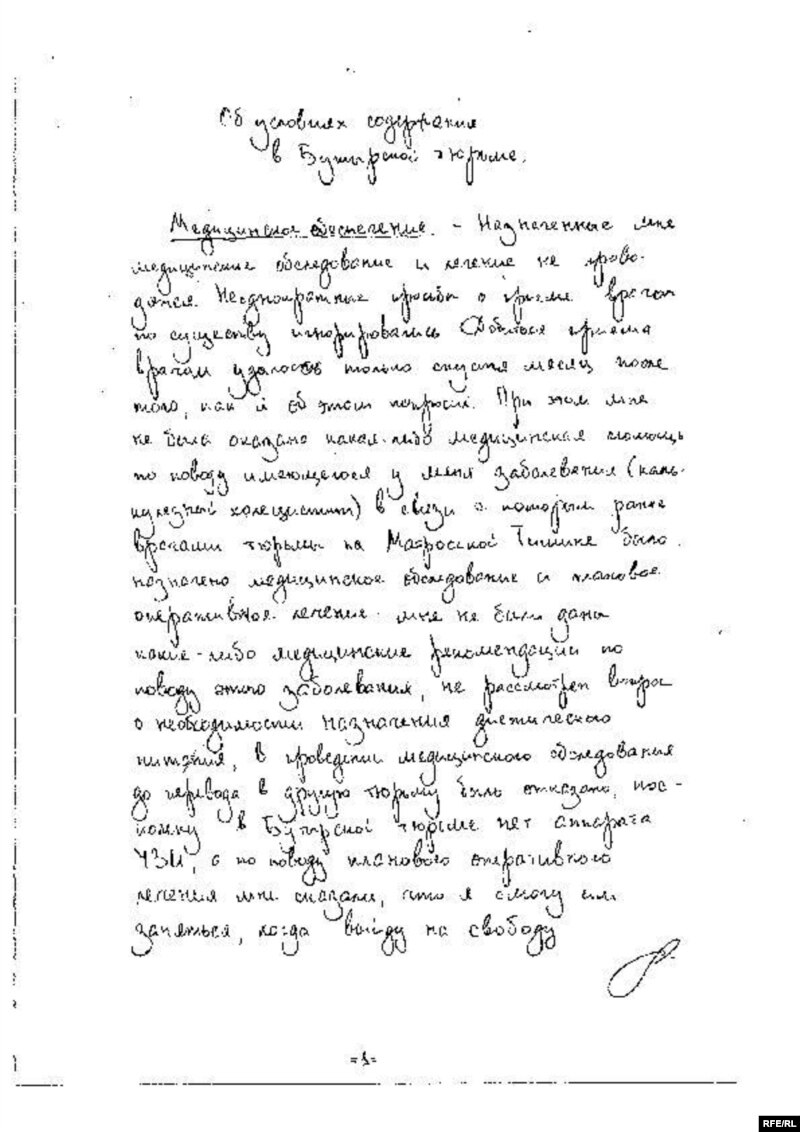 Об условиях содержания
в Бутырской тюрьме.
Медицинское обеспечение. - Назначенные мне
медицинские обследование и лечение не прово-
дятся. Неоднократные просьбы о приеме врачом
по существу игнорировались. Добиться приема
врачам удалось только спустя месяц после
того, как я об этом попросил. При этом мне
не была оказана какая-либо медицинская помощь
по поводу имеющегося у меня заболевания (каль-
кулезный холецистит) в связи с которым ранее
врачами тюрьмы на Матросской Тишине было
назначено медицинское обследование и плановое
оперативное лечение. мне не были даны
какие-либо медицинские рекомендации по
поводу этого заболевания, не рассмотрен вопрос
о необходимости назначения диетического
питания, в проведении медицинского обследования
до перевода в другую тюрьму было отказано, пос-
кольку в Бутырской тюрьме нет аппарата
УЗИ, а по поводу планового оперативного
лечения мне сказали, что я смогу им
заняться, когда выйду на свободу
-1-
RFE/RL